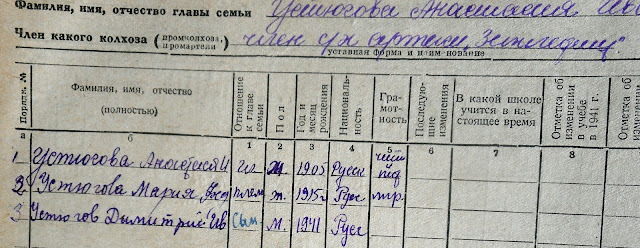 Фамилия, имя, отчество главы семьи Устюгова Анастасия Ив
Член какого колхоза (промколхоза, промартели) член с/х артели „Земледелец"
уставная форма и наименование
Порядк. № Фамилия, имя, отчество (полностью) Отношение к главе семьи Пол Год и месяц рождения Националь- ность Гра- мотность Последую- щие изменения В какой школе учится в на- стоящее время Отметка об изменении в учебе в 1941 г. Отметка об изменени
а б 1 2 3 4 5 6 7 8
1 Устюгова Анастасия И гл ж 1905 Русск
2 Устюгова Мария плем ж. 1915 Рус гр.
3 Устюгов Димитрий Ив сын м. 1941 Русс